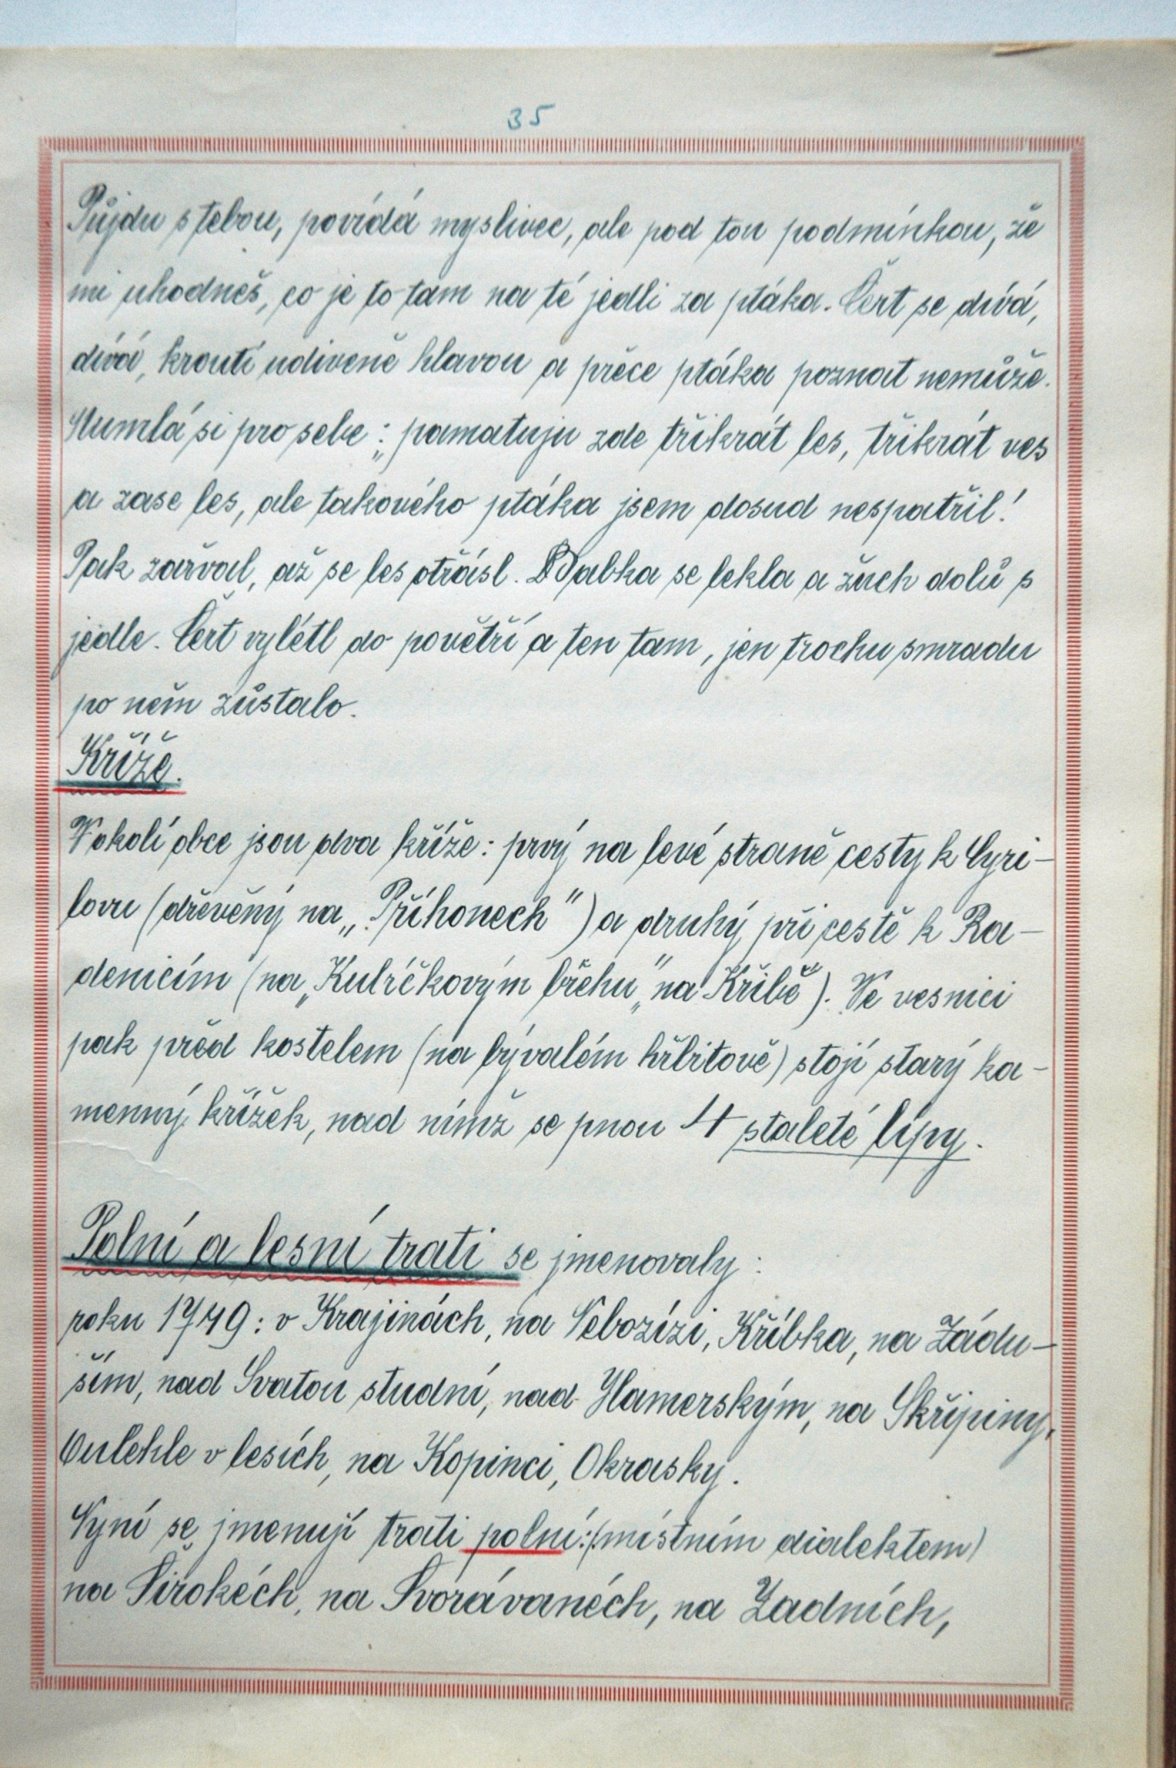 35
Půjdu s tebou, povídá myslivec, ale pod tou podmínkou, že
mi uhodneš, co je to tam na té jedli za ptáka. Čert se dívá,
dívá, kroutí udiveně hlavou a přece ptáka poznat nemůže.
Mumlá si pro sebe: „pamatuju zde třikrát les, třikrát ves
a zase les, ale takového ptáka jsem dosud nespatřil!
Pak zařval, až se les otřásl. Babka se lekla a žuch dolů s
jedle. Čert vylétl do povětří a ten tam, jen trochu smradu
po něm zůstalo.
Kříže.
V okolí obce jsou dva kříže: prvý na levé straně cesty k Cyri-
lovu (dřevěný na „Příhonech") a druhý při cestě k Ra-
denicím (na „Kulíčkovým břehu" „na Křibě"). Ve vesnici
pak před kostelem (na bývalém hřbitově) stojí starý ka-
menný křížek, nad nímž se pnou 4 staleté lípy.
Polní a lesní trati se jmenovaly:
roku 1749: v Krajinách, na Nebozízi, Kříbka, na Zádu-
ším, nad Svatou studní, nad Hamerským, na Skřipiny,
Oulehle v lesích, na Kopinci, Okrasky.
Nyní se jmenují trati polní: (místním dialektem)
na Širokéch, na Svorávanéch, na Zadních,